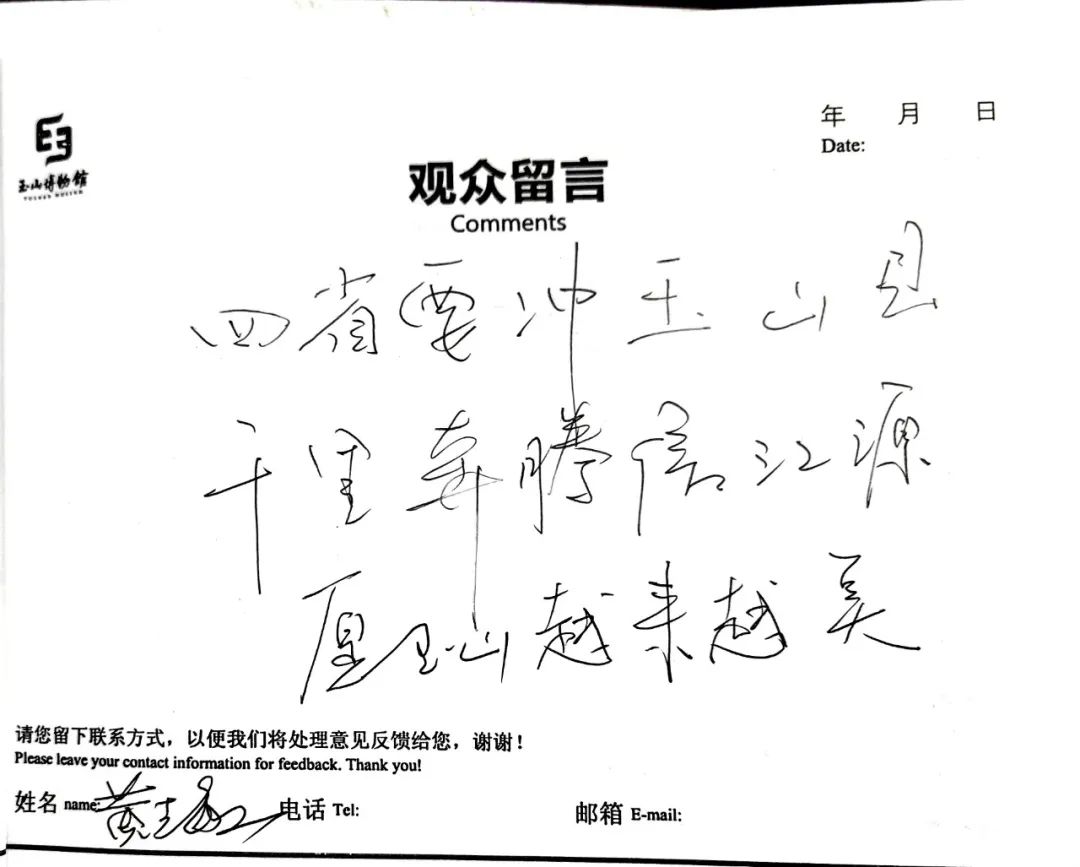 玉山博物馆
YUSHAN MUSEUM
年 月 日
Date:
观众留言
Comments
四省要冲玉山县
千里奔腾信江源
愿玉山越来越美
请您留下联系方式，以便我们将处理意见反馈给您，谢谢！
Please leave your contact information for feedback. Thank you!
姓名 name: 黄志 电话 Tel: 邮箱 E-mail: